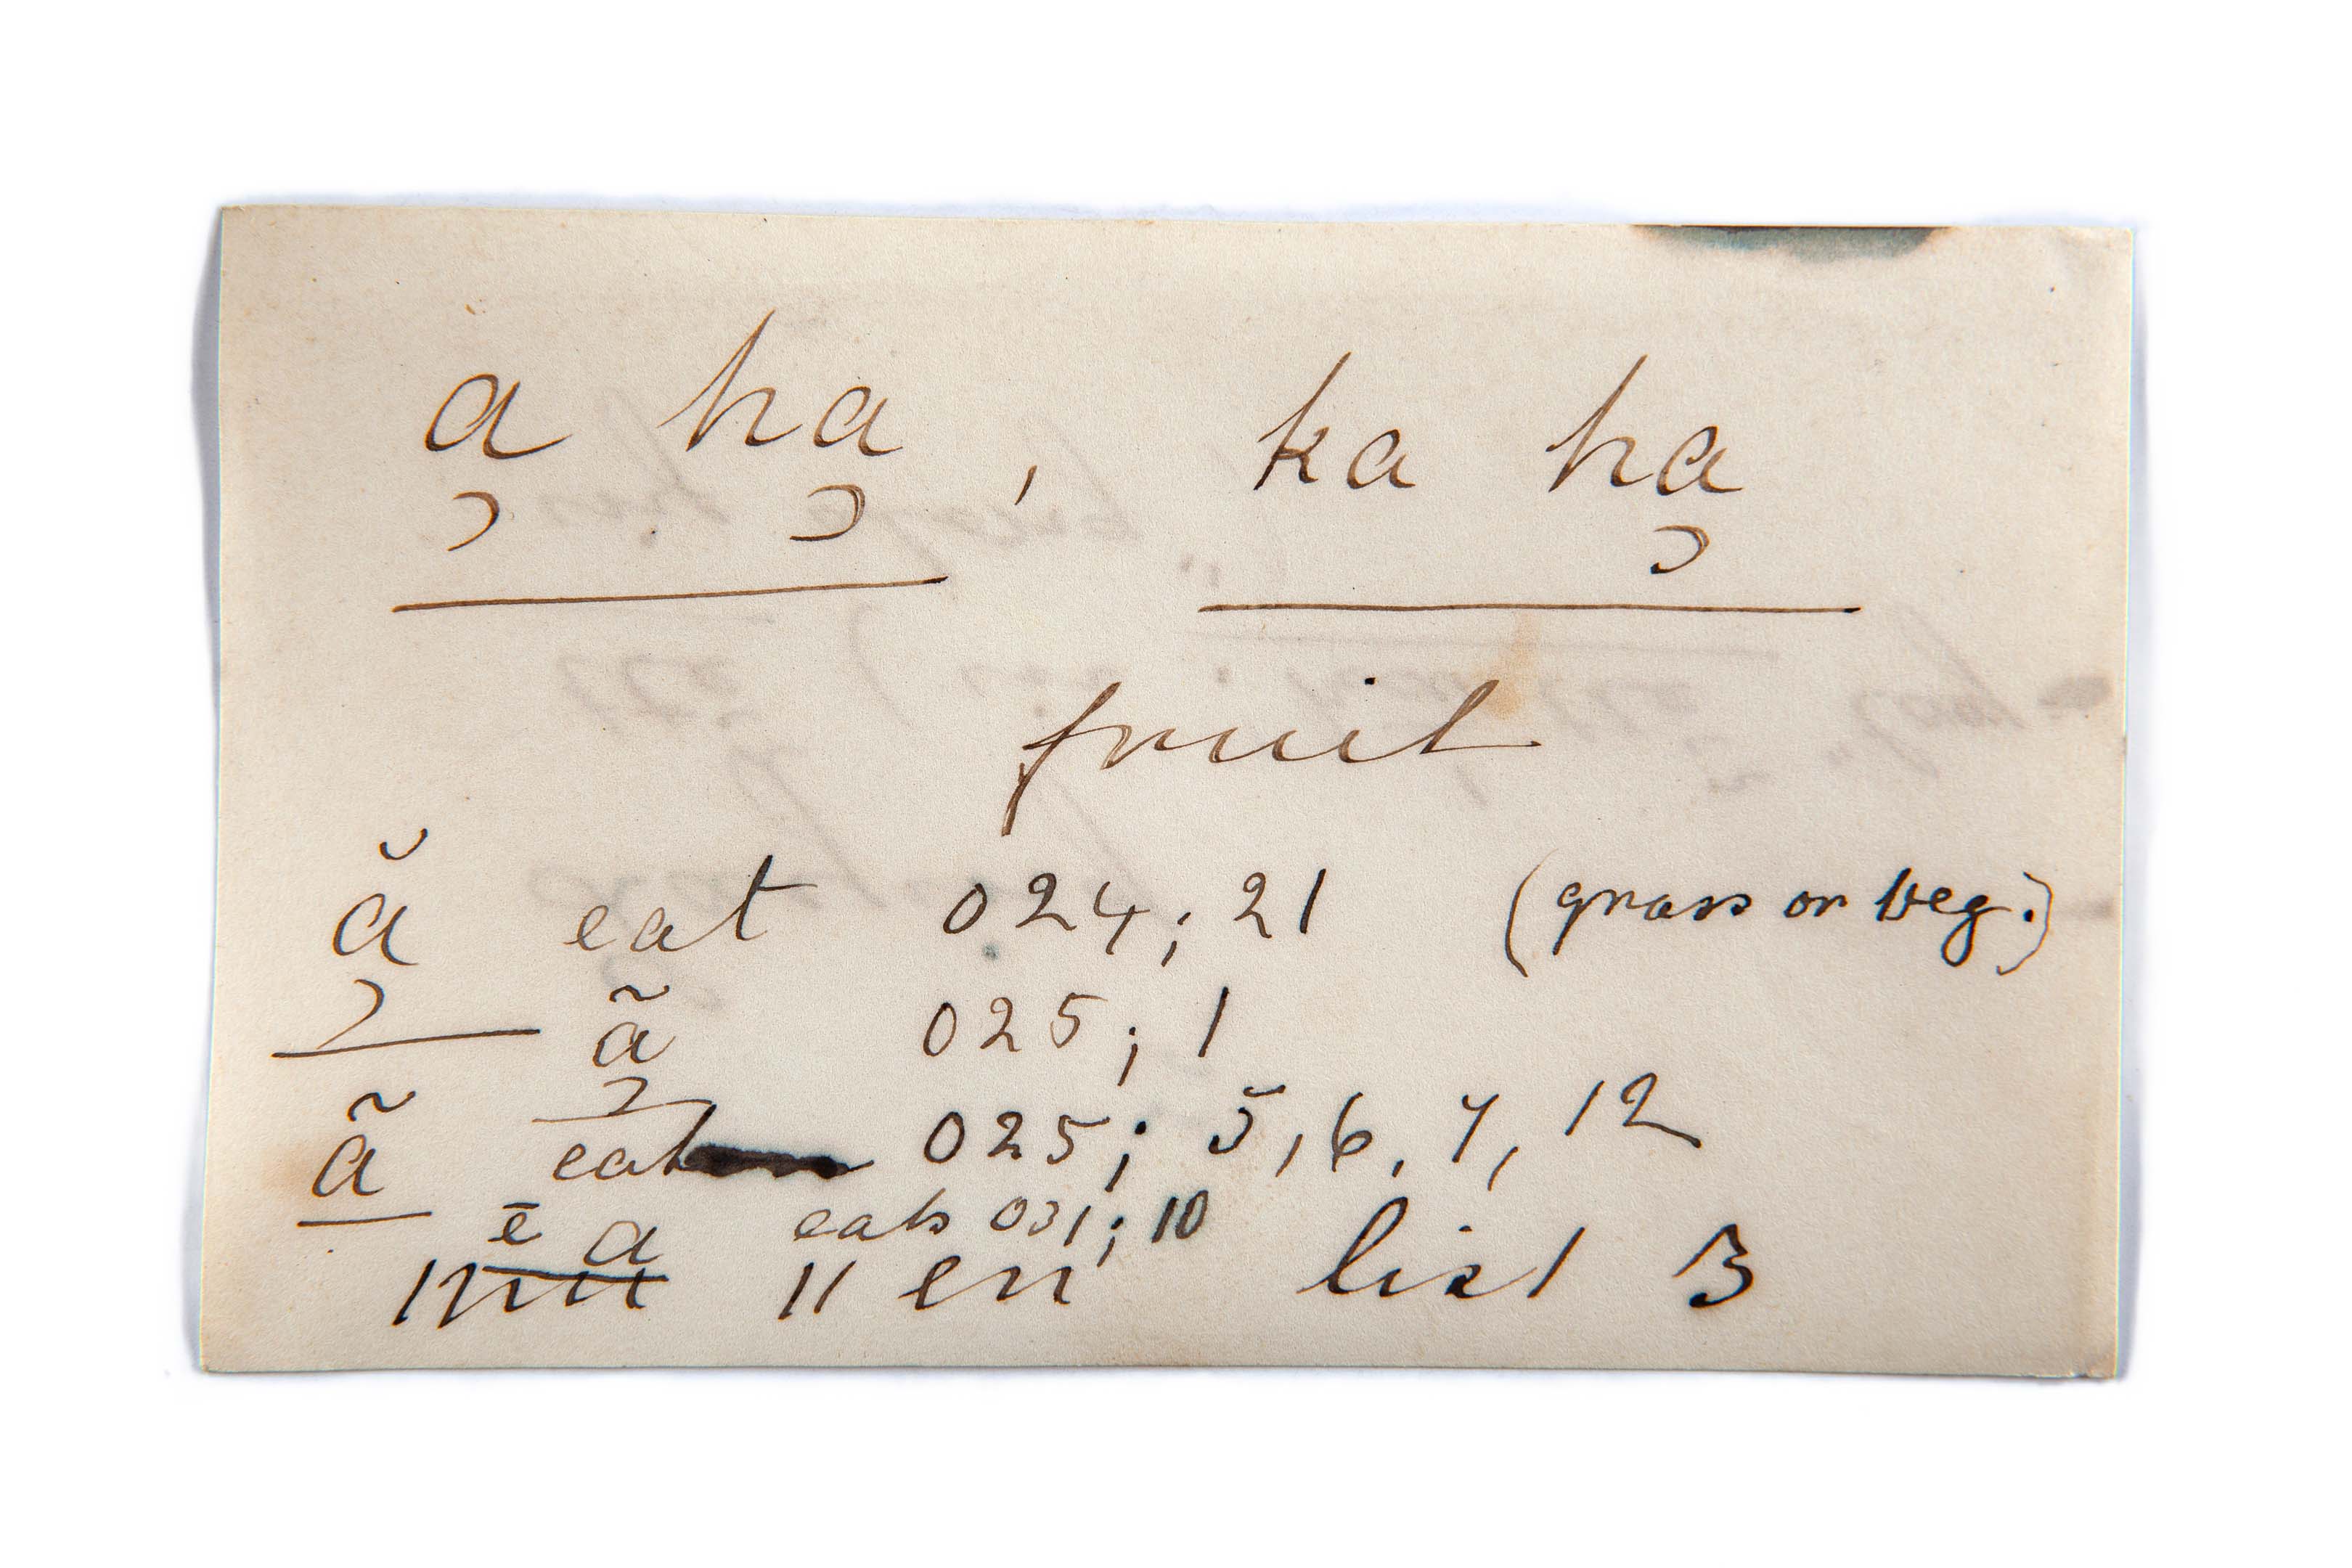 a ha , ka ha
fruit
ă eat 024; 21 (grass or veg.)
ã 025; 1
ã eat 025; 5, 6, 7, 12
ē a eats 031; 10
11 en list 3